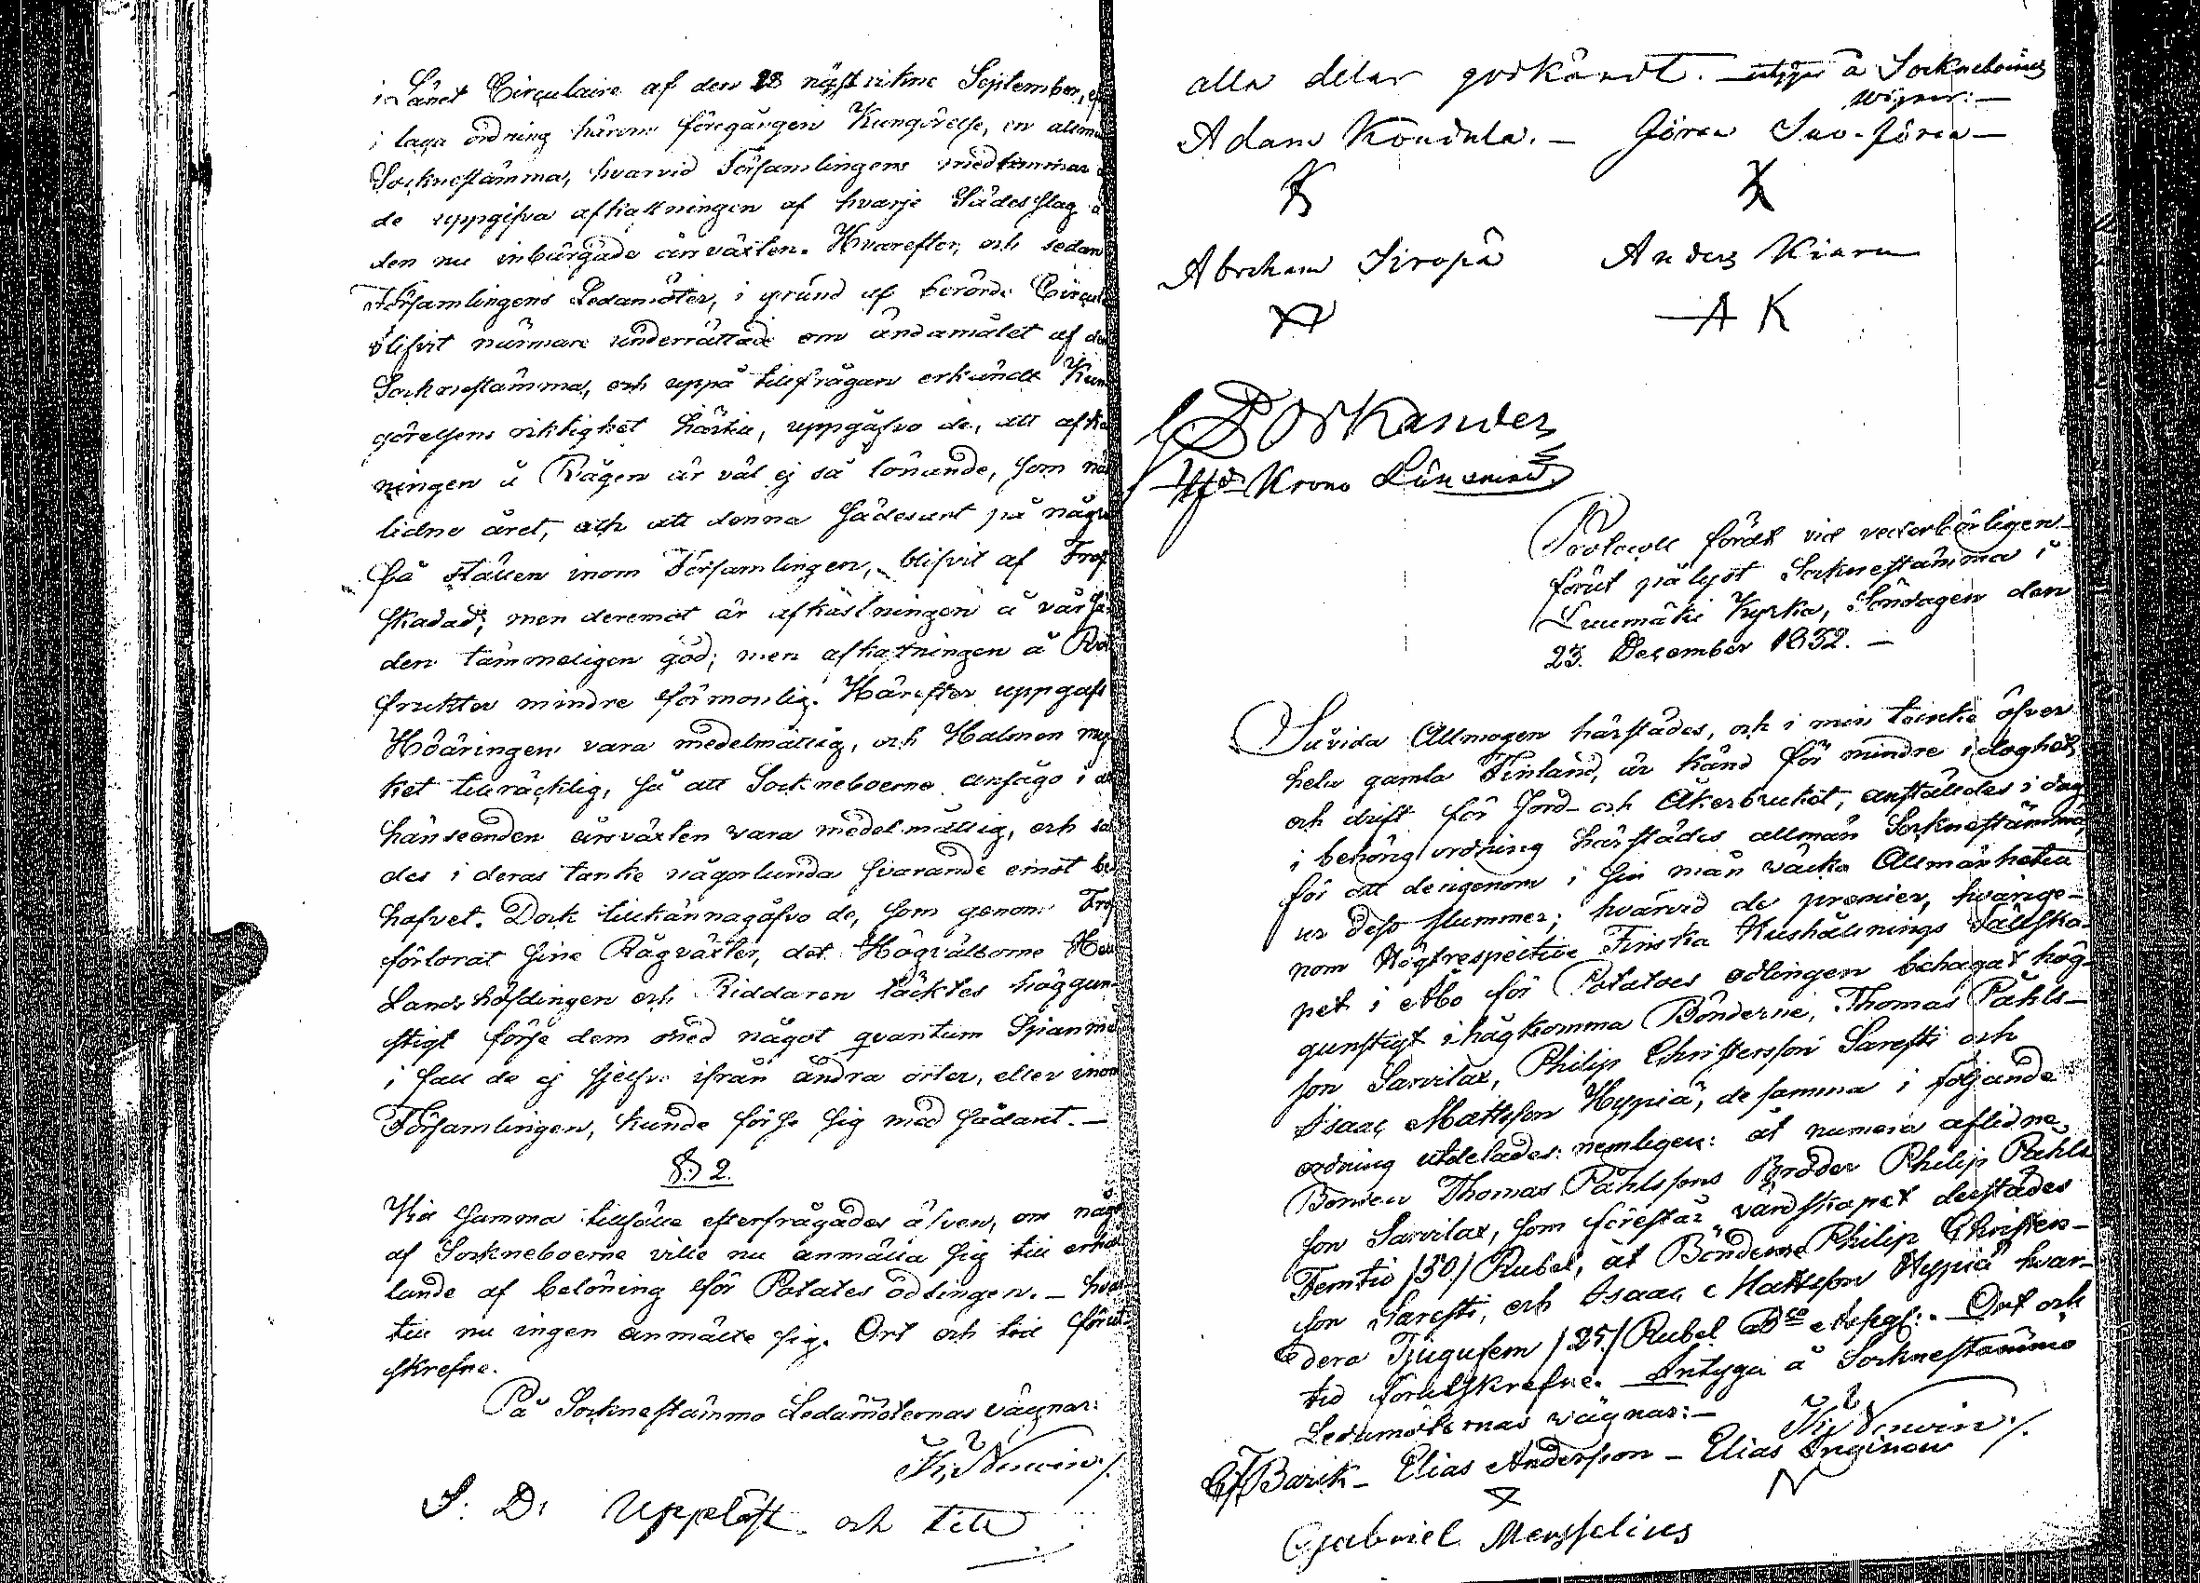 i Länet Circulaire af den 28 nästvikne September, ef
i laga ordning härom föregången Kungörelse, en allmän
Sockneståmma, hvarvid Församlingens medlemmar
de uppgifva afkastningen af hvarje Sädesslag å
den nu inbärgade årsväxten. Hvarefter, och sedan
Församlingens Ledamöter, i grund af berörde Circul
blifvit närmare underrättade om ändamålet af de
Socknestämma, och uppå tillfrågan erkändt Kun
görelsens riktighet härtill, uppgåfvo de, att afka
ningen å Rågen är väl ej så lönande, som nä
lidne året, och att denna Sädesart på någr
så ställen inom Församlingen, blifvit af Fros
skadad; men deremot är afkastningen å vårsä
den tämmeligen god; men afkastningen å Rot
frukter mindre förmonlig. Härefter uppgafs
Höäringen vara medelmåttig, och Halmen myc
ket tillräcklig, så att Sockneboerne ansågo i al
hänseenden årsväxten vara medelmåttig, och så
des i deras tanke någorlunda svarande emot be
hofvet. Dock tillkännagåfvo de, som genom Fros
förlorat sine Rågväxter, det Högvälborne Her
Landshöfdingen och Riddaren täcktes höggun
stigt förse dem med något qvantum Spanmå
i fall de ej sjelfve ifrån andra orter, eller inom
Församlingen, kunde förse sig med sådant. —
§ 2.
Vid samma tillfälle efterfrågades äfven, om någ
af Sockneboerne ville nu anmäla sig till erhål
lande af belöning för Potates odlingen. – hvar
till nu ingen anmälte sig. Ort och tid förut
skrefne.
På Socknestämmo Ledamöternas vägnar:
S. D. Uppläst och till
alla delar godkändt. — å Sockneboernes
vägnar: —
Adam Koudula. — Göran Suo-Göran —
Abraham Siropä Anders Kiaru
A K
G Dorkander
Krono Länsman
Protocoll fördt vid vederbörligen
förut pålyst Socknestämma i
Luumäki Kyrka, Söndagen den
23. December 1832. —
Såvida Allmogen härstädes, och i min tanke öfver
hela gamla Finland, är känd för mindre idoghet
och drift för Jord- och Åkerbruket, anställdes i dag
i behörig ordning härstädes allmän Socknestämma,
för att derigenom i sin mån väcka Allmänheten
ur dess slummer; hvarvid de premier, hvarige-
nom Högtrespective Finska Hushållnings Sällska-
pet i Åbo för Potatoes odlingen behagat hög-
gunstigt ihågkomma Bönderne, Thomas Påhls-
son Sarvilax, Philip Christersson Saresti och
Isaac Mattsson Hypiä, de samma i följande
ordning utdelades: nemligen: åt numera aflidne
Bonden Thomas Påhlssons Broder Philip Påhls
son Sarvilax, som förestår värdskapet derstädes
Femtio /50/ Rubel, åt Bönderne Philip Christers-
son Saresti, och Isaac Mattsson Hypiä hvar-
dera Tjugufem /25/ Rubel Bco Assgf:. Ort och
tid förutskrefne. — Intyga å Socknestämmo
Ledamöternas vägnar: —
Barik – Elias Andersson – Elias Inginou
Gabriel Mensselius